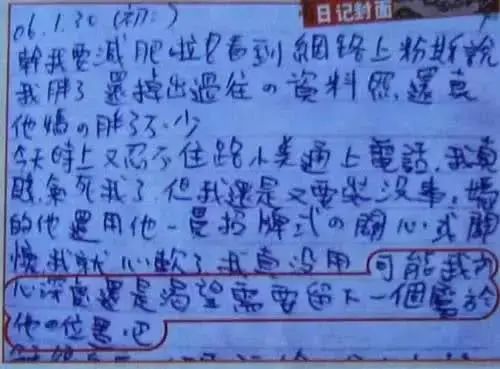 日记封面
06.1.30 (初二)
幹我要減肥啦 看到網路上粉斯說
我胖了 還掉出過往の資料照,還真
他媽の胖了不少
今天晚上又忍不住跟小美通上電話,我真
賤,氣死我了,但我還是又要裝沒事,媽
的他還用他一貫招牌式の關心式關
懷,我就心軟了我真沒用 可能我內
心深處還是渴望需要留下一個屬於
他の位置吧